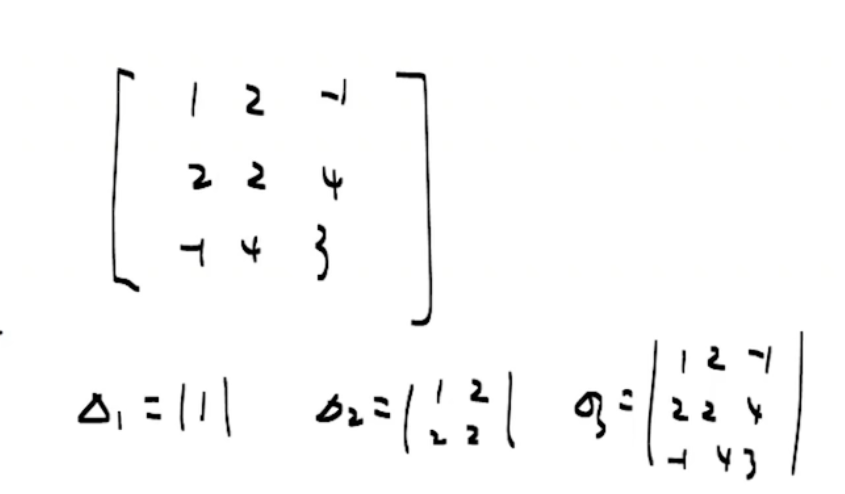 1 2 -1
2 2 4
-1 4 3
Δ₁ = |1| Δ₂ = |1 2| Δ₃ = |1 2 -1|
|2 2| |2 2 4|
|-1 4 3|